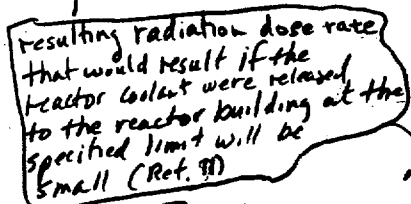 resulting radiation dose rate
that would result if the
reactor coolant were released
to the reactor building at the
specified limit will be
small (Ref.